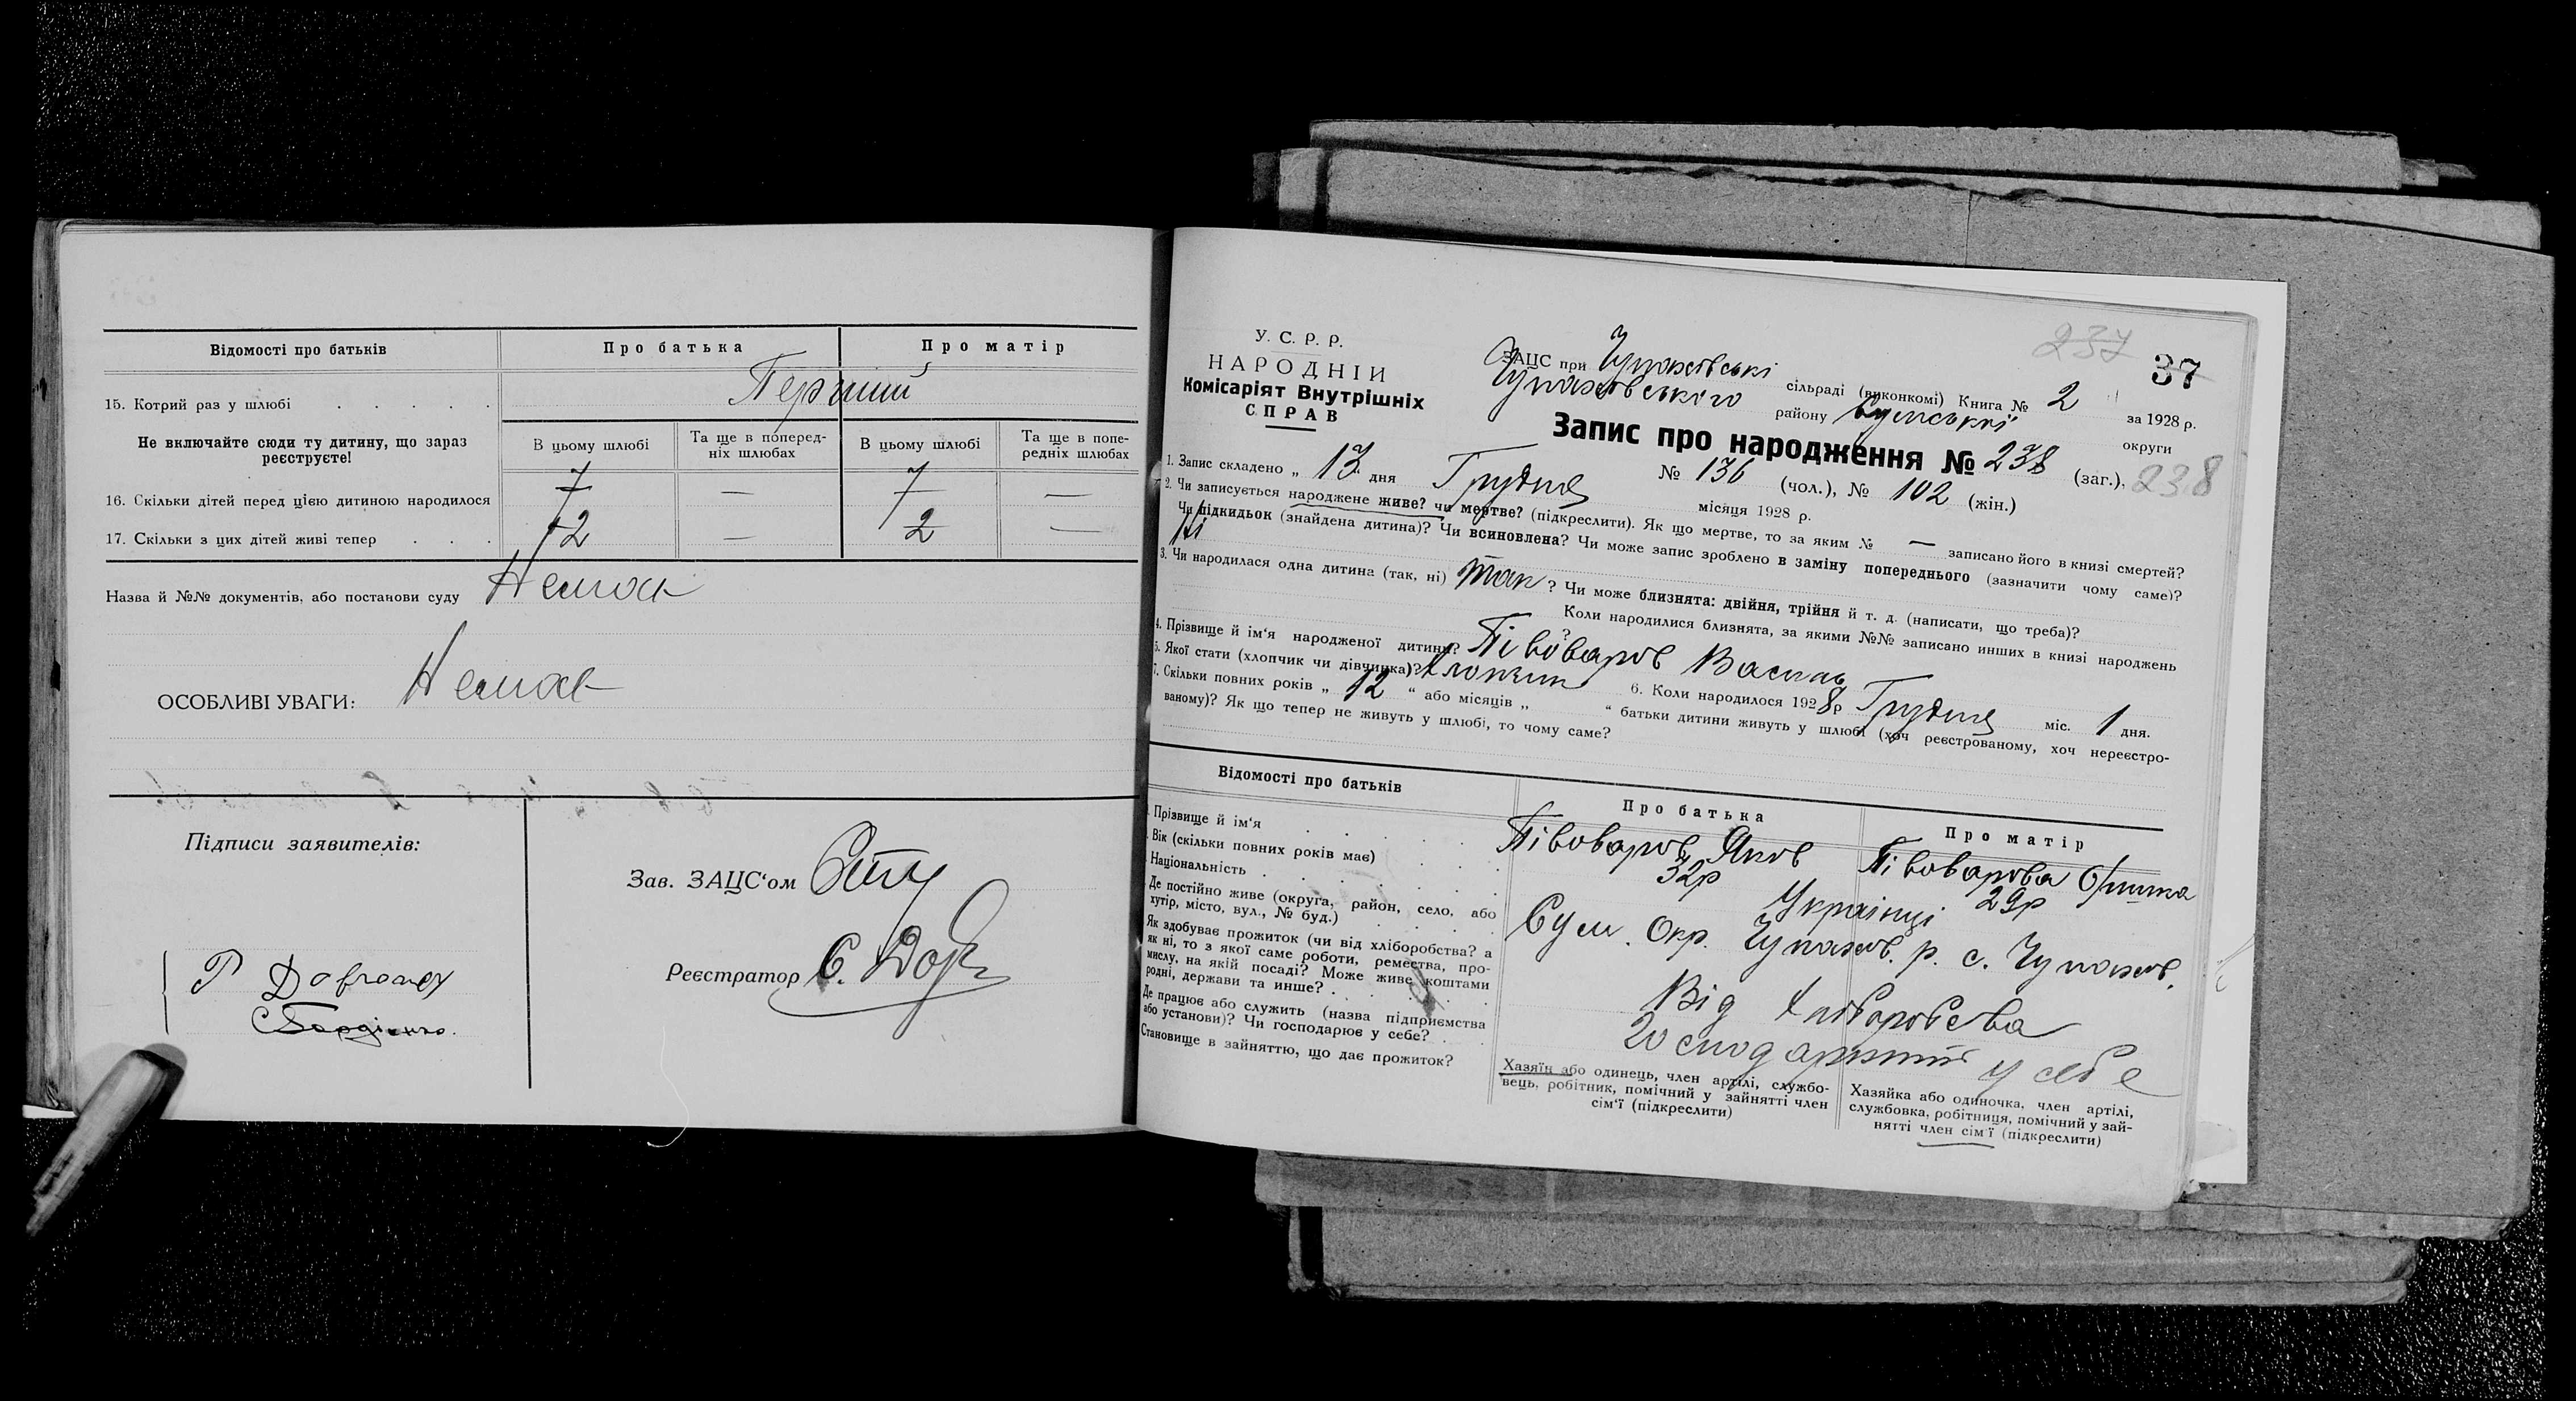 Відомості про батьків Про батька Про матір
15. Котрий раз у шлюбі Перший
Не включайте сюди ту дитину, що зараз реєструєте!
В цьому шлюбі Та ще в поперед-ніх шлюбах В цьому шлюбі Та ще в попе-редніх шлюбах
16. Скільки дітей перед цією дитиною народилося 7 — 7 —
17. Скільки з цих дітей живі тепер 2 — 2 —
Назва й №№ документів, або постанови суду Немає
ОСОБЛИВІ УВАГИ: Немає
Підписи заявителів:
Зав. ЗАЦС'ом
Реєстратор С.
237
37
У. С. Р. Р.
НАРОДНІЙ
Комісаріят Внутрішніх
СПРАВ
ЗАЦС при Чупахівські сільраді (виконкомі) Книга № 2 за 1928 р.
Чупахівського району Сумської округи
Запис про народження № 238 (заг.), 238
№ 136 (чол.), № 102 (жін.)
1. Запис складено „ 13 " дня Грудня місяця 1928 р.
2. Чи записується народжене живе? чи мертве? (підкреслити). Як що мертве, то за яким № — записано його в книзі смертей?
Чи підкидьок (знайдена дитина)? Чи всиновлена? Чи може запис зроблено в заміну попереднього (зазначити чому саме)?
Ні
3. Чи народилася одна дитина (так, ні) Так ? Чи може близнята: двійня, трійня й т. д. (написати, що треба)?
? Коли народилися близнята, за якими №№ записано инших в книзі народжень
4. Прізвище й ім'я народженої дитини? Півоваров Василь
5. Якої стати (хлопчик чи дівчинка)? Хлопчик 6. Коли народилося 1928 р Грудня міс. 1 дня.
7. Скільки повних років „ 12 " або місяців „ " батьки дитини живуть у шлюбі (хоч реєстрованому, хоч нереєстро-
ваному)? Як що тепер не живуть у шлюбі, то чому саме?
Відомості про батьків Про батька Про матір
Прізвище й ім'я Півоваров Яков Півоварова Оришка
Вік (скільки повних років має) 32р 29р
Національність Українці
Де постійно живе (округа, район, село, або
хутір, місто, вул., № буд.) Сум. Окр. Чупахів. р. с. Чупахів.
Як здобуває прожиток (чи від хліборобства? а
як ні, то з якої саме роботи, ремества, про-
мислу, на якій посаді? Може живе коштами
родні, держави та инше? Від Хліборобства
Де працює або служить (назва підприємства
або установи)? Чи господарює у себе? Господарюють у себе
Становище в зайняттю, що дає прожиток?
Хазяїн або одинець, член артілі, службо-
вець, робітник, помічний у зайнятті член
сім'ї (підкреслити)
Хазяйка або одиночка, член артілі,
службовка, робітниця, помічний у зай-
нятті член сім'ї (підкреслити)